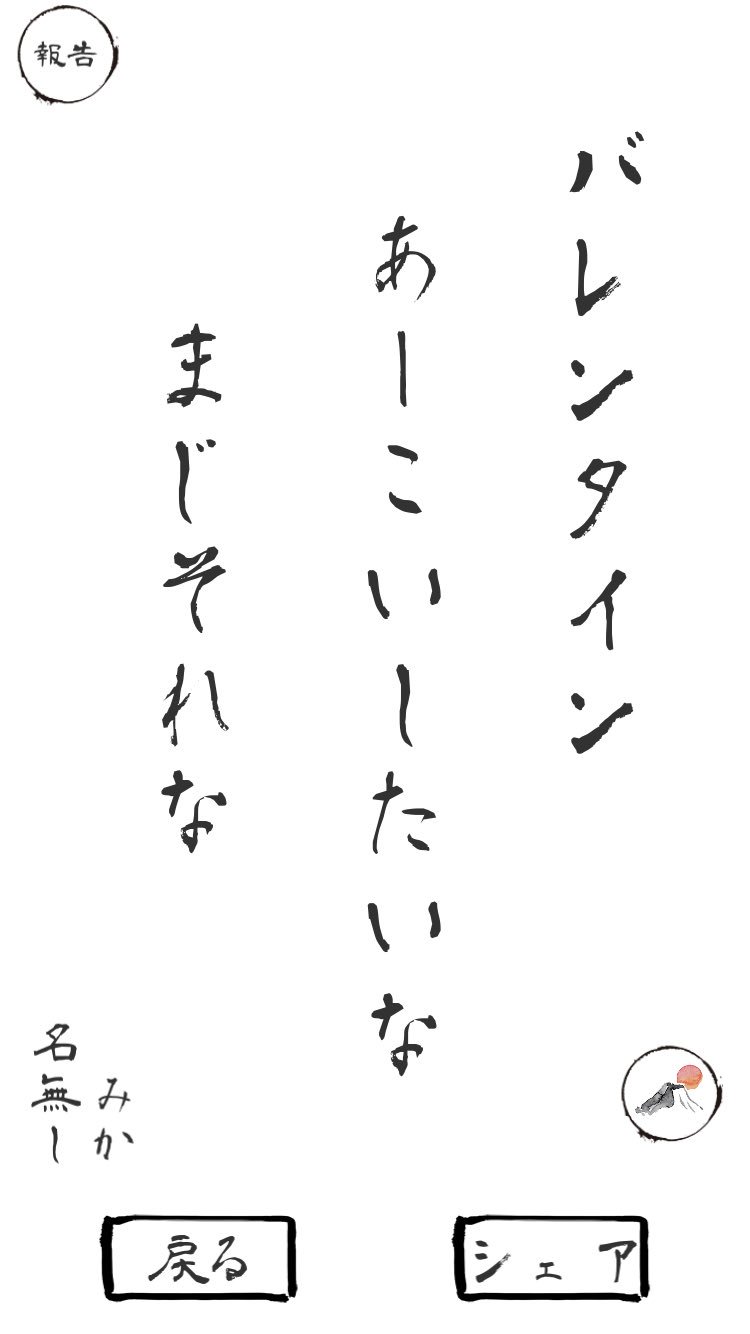 報告
バレンタイン
あーこいしたいな
まじそれな
みか
名無し
戻る
シェア